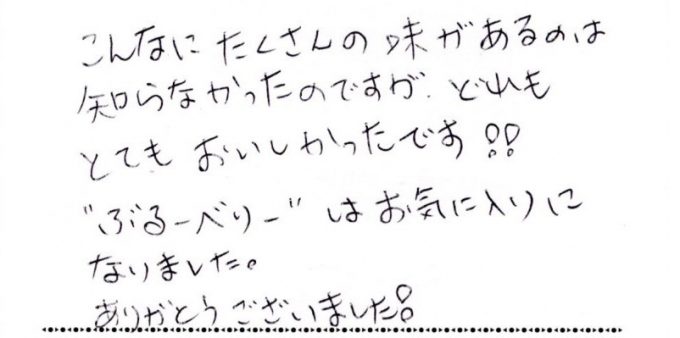 こんなに たくさんの 味があるのは
知らなかったのですが、どれも
とても おいしかったです!!
"ぶるーべりー" は お気に入りに
なりました。
ありがとうございました!